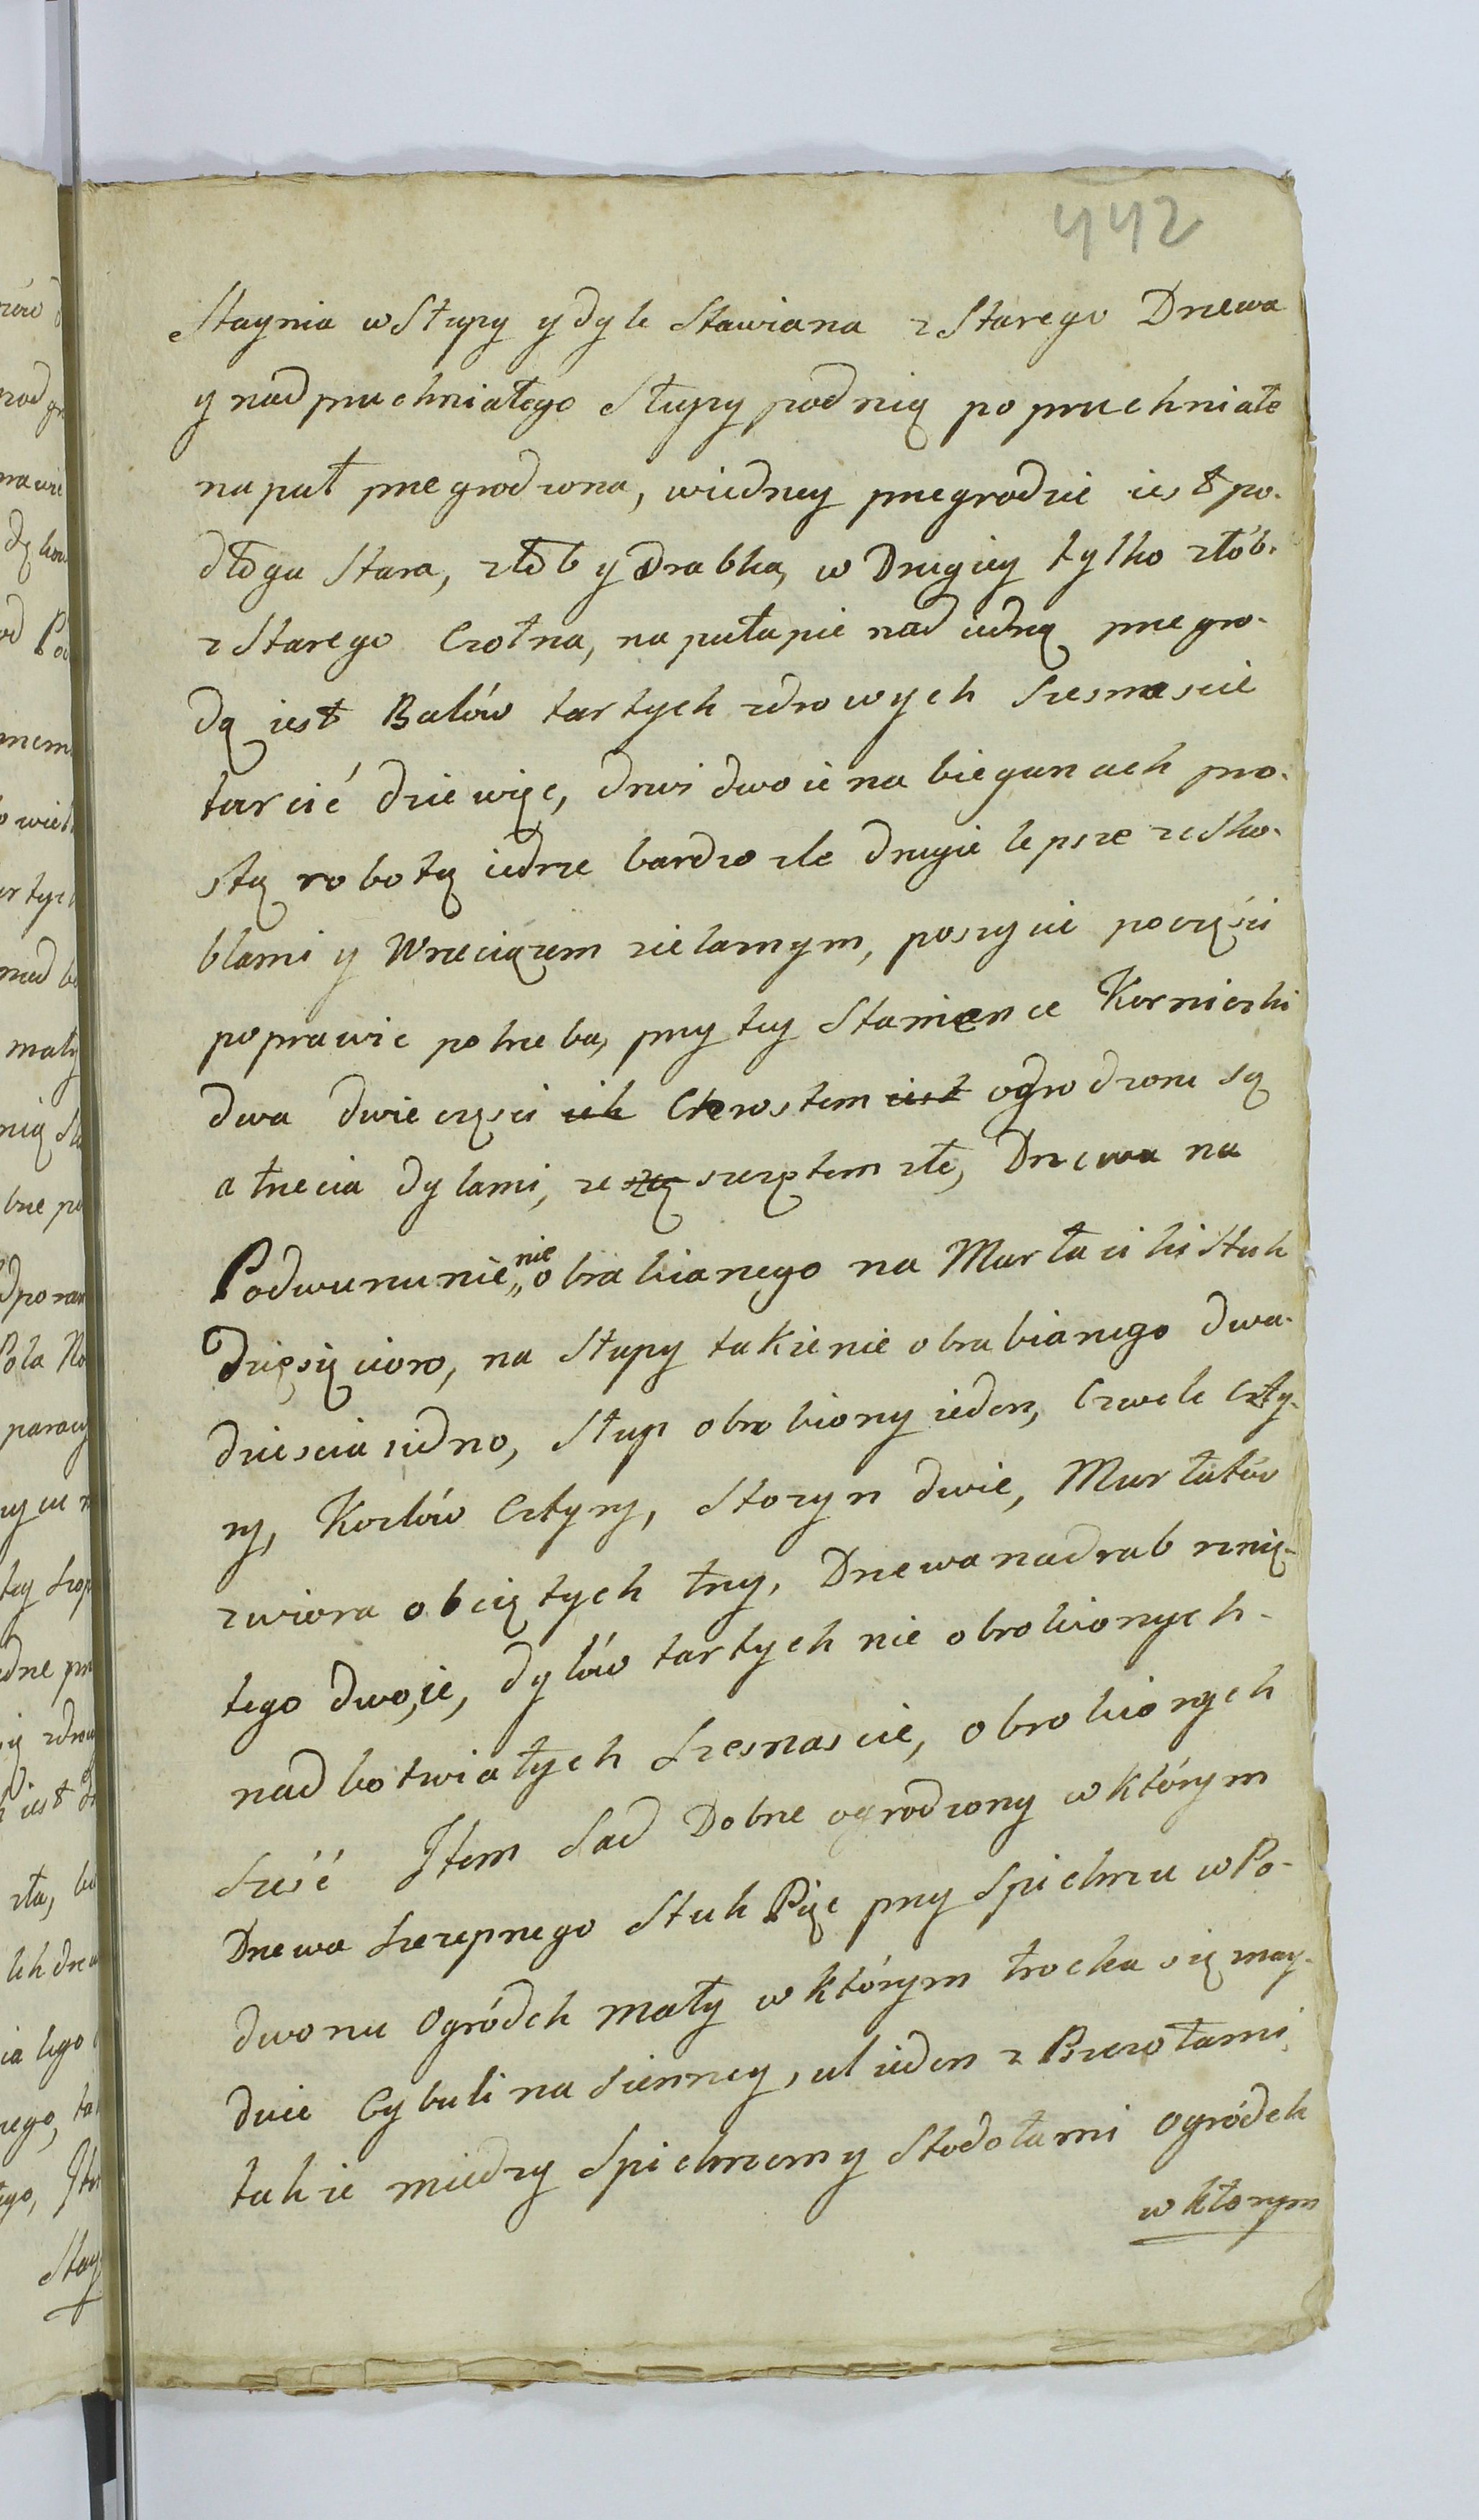 442
Staynia w Słupy y dyle Stawiana z Starego Drzewa
y nadpruchniałego Słupy pod nią popruchniałe
na puł przegrodzona, w iedney przegrodzie iest po-
dłoga Stara, złób y drabka, w Drugiey tylko złób
z Starego Czołna, na pułapie nad iedną przegro-
dą iest Balów tartych zdrowych Szesnascie
tarcić dziewięc, drzwi dwoie na bieganach pro-
stą robotą iedne bardzo złe drugie lepsze ze Sko-
blami y Wrzeciązem żelaznym, poszycie poczęści
poprawic potrzeba, przy tey Staience Kurniczki
dwa dwie częsci ich Chrostem iest ogrodzone są
a trzecia dylami, ze szczętem złe, Drzewa na
Podwurzu nie nie obrabianego na Murłacikisztuk
Dzięsięcioro, na Słupy także nie obrabianego dwa-
dziescia iedno, Słup obrobiony ieden, Czwele Czty-
ry, Kozłów Cztyry, Storzyn dwie, Murłatów
z wiora obciętych trzy, Drzewa nadrab rznię-
tego dwoie, dylów tartych nie obrobionych
nadbotwiałych Szesnascie, obrobionych
Szesć Item Sad Dobrze ogrodzony w którym
Drzewa Szczepnego Sztuk Pięc przy Spichrzu w Po-
dworzu Ogródek mały w którym trocha się znay-
duie Cybuli nasienney, ul ieden z Pszczołami
także miedzy Spichrzem y Stodołami Ogródek
w ktorym